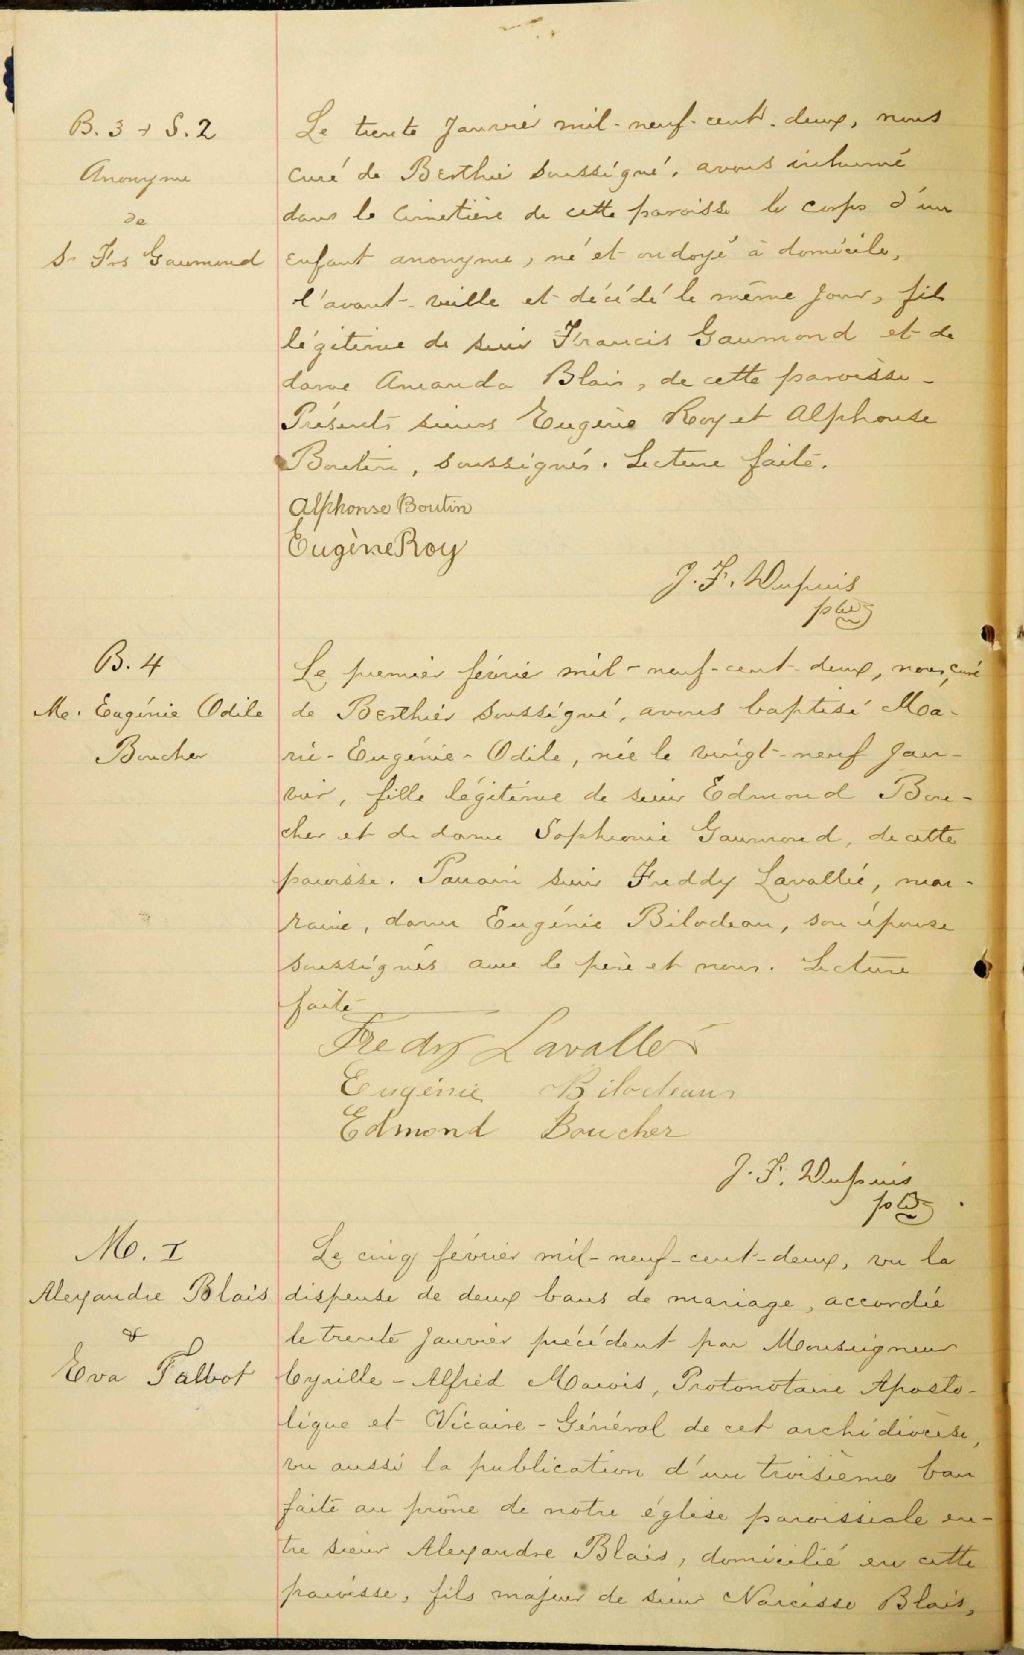 B. 3 + S. 2
Anonyme
de
Sr Frs Gaumond
Le trente Janvier mil-neuf-cent-deux, nous
curé de Berthier soussigné, avons inhumé
dans le cimetière de cette paroisse le corps d'un
enfant anonyme, né et ondoyé à domicile,
l'avant-veille et décédé le même jour, fils
légitime de sieur Francis Gaumond et de
dame Amanda Blais, de cette paroisse.
Présents sieurs Eugène Roy et Alphonse
Boutin, soussignés. Lecture faite.
Alphonse Boutin
Eugène Roy
J. F. Dupuis
ptre
B. 4
Me. Eugénie Odile
Boucher
Le premier février mil-neuf-cent-deux, nous, curé
de Berthier soussigné, avons baptisé Ma-
rie-Eugénie-Odile, née le vingt-neuf Jan-
vier, fille légitime de sieur Edmond Bou-
cher et de dame Sophronie Gaumond, de cette
paroisse. Parrain sieur Freddy Lavallée, mar-
raine, dame Eugénie Bilodeau, son épouse
soussignés avec le père et nous. Lecture
faite
Fredy Lavallée
Eugénie Bilodeau
Edmond Boucher
J. F. Dupuis
ptre
M. I
Alexandre Blais
&
Eva Talbot
Le cinq février mil-neuf-cent-deux, vu la
dispense de deux bans de mariage, accordée
le trente Janvier précédent par Monseigneur
Cyrille-Alfred Marois, Protonotaire Aposto-
lique et Vicaire-Général de cet archidiocèse,
vu aussi la publication d'un troisième ban
faite au prône de notre église paroissiale en-
tre sieur Alexandre Blais, domicilié en cette
paroisse, fils majeur de sieur Narcisse Blais,